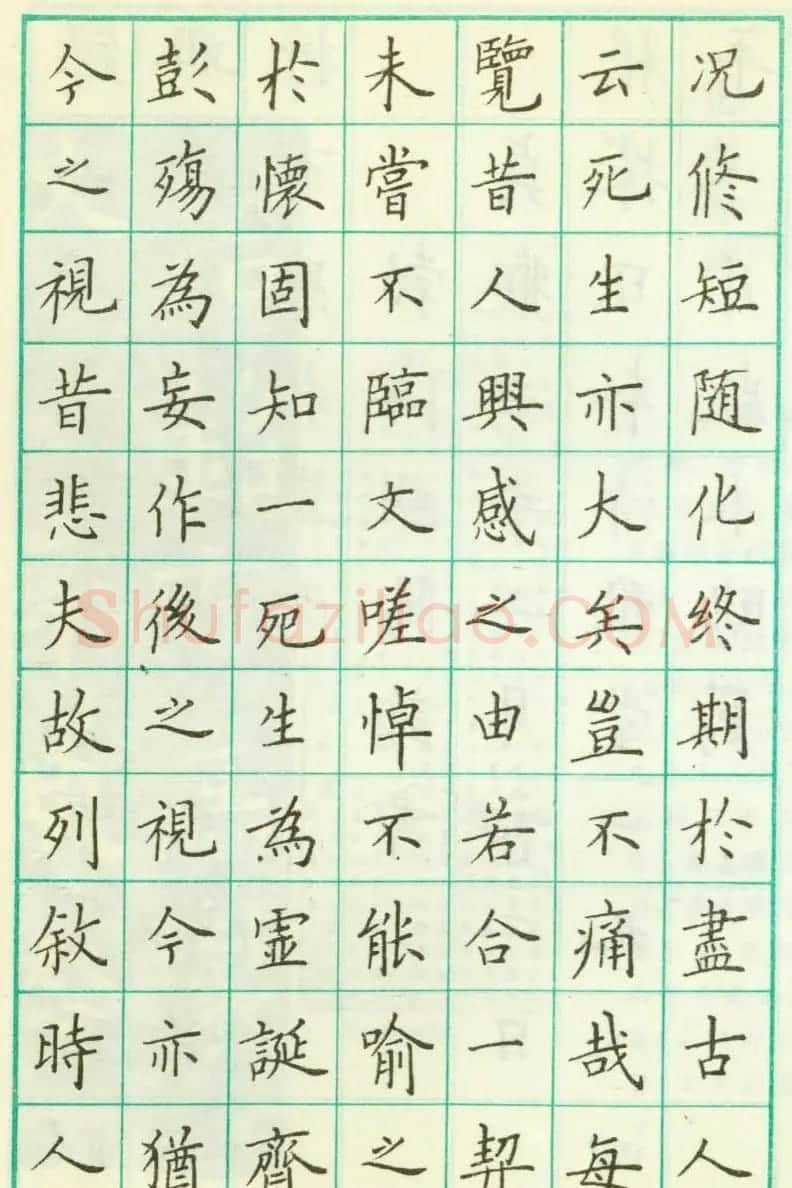 况修短随化終期於盡古人
云死生亦大矣豈不痛哉每
覽昔人興感之由若合一契
未嘗不臨文嗟悼不能喻之
於懷固知一死生為虚誕齊
彭殤為妄作後之視今亦猶
今之視昔悲夫故列敘時人
Shufaziliao.COM